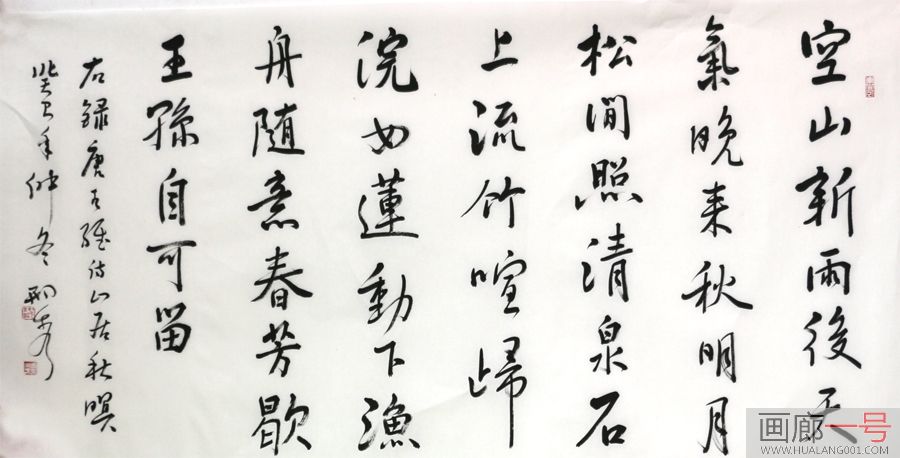 空山新雨後天
氣晚来秋明月
松間照清泉石
上流竹喧歸
浣女蓮動下漁
舟随意春芳歇
王孫自可留
右録唐王維诗山居秋暝
癸巳年仲冬
画廊一号
WWW.HUALANG001.COM